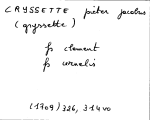 CRYSSETTE pieter jacobus
(gryssette)
fs clement
fs cornelis
(1709) 326, 31400